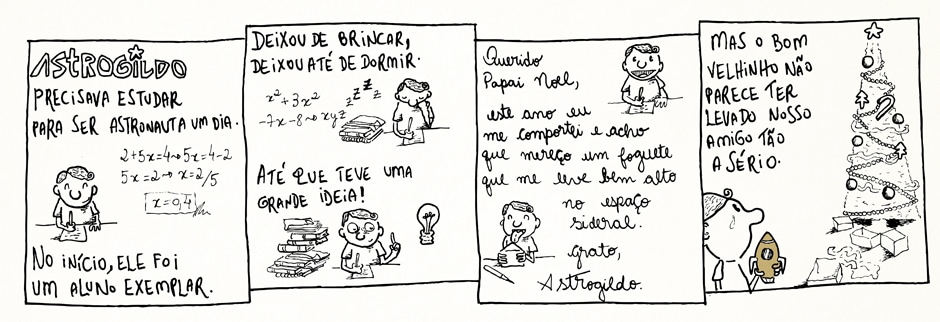 ASTROGILDO
PRECISAVA ESTUDAR
PARA SER ASTRONAUTA UM DIA.
2+5x=4→5x=4-2
5x=2→x=2/5
x=0,4
NO INÍCIO, ELE FOI
UM ALUNO EXEMPLAR.
DEIXOU DE BRINCAR,
DEIXOU ATÉ DE DORMIR.
zzzz
x²+3x²
-7x-8→xyz
ATÉ QUE TEVE UMA
GRANDE IDEIA!
Querido
Papai Noel,
este ano eu
me comportei e acho
que mereço um foguete
que me leve bem alto
no espaço
sideral.
grato,
Astrogildo.
MAS O BOM
VELHINHO NÃO
PARECE TER
LEVADO NOSSO
AMIGO TÃO
A SÉRIO.